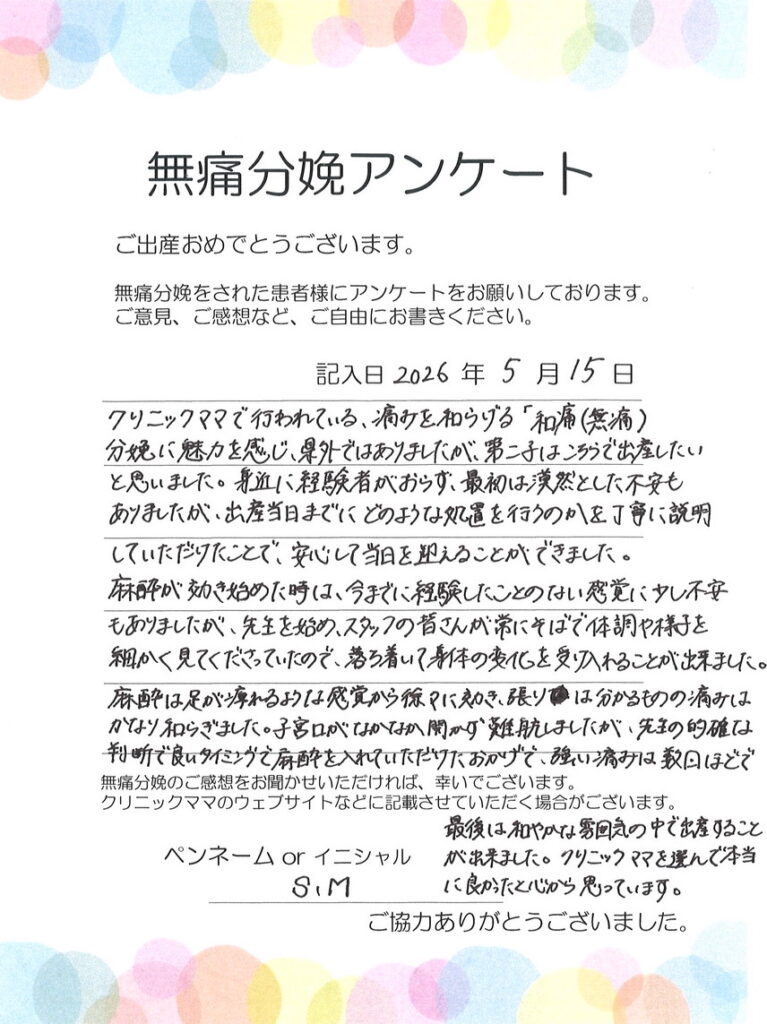 無痛分娩アンケート
ご出産おめでとうございます。
無痛分娩をされた患者様にアンケートをお願いしております。
ご意見、ご感想など、ご自由にお書きください。
記入日 2026 年 5 月 15 日
クリニックママで行われている、痛みを和らげる「和痛(無痛)
分娩に魅力を感じ、県外ではありましたが、第二子はこちらで出産したい
と思いました。身近に経験者がおらず、最初は漠然とした不安も
ありましたが、出産当日までにどのような処置を行うのかを丁寧に説明
していただけたことで、安心して当日を迎えることができました。
麻酔が効き始めた時は、今までに経験したことのない感覚に少し不安
もありましたが、先生を始め、スタッフの皆さんが常にそばで体調や様子を
細かく見てくださっていたので、落ち着いて身体の変化を受け入れることが出来ました。
麻酔は足が痺れるような感覚から徐々に効き、張りは分かるものの痛みは
かなり和らぎました。子宮口がなかなか開かず難航しましたが、先生の的確な
判断で良いタイミングで麻酔を入れていただけたおかげで、強い痛みは数回ほどで
無痛分娩のご感想をお聞かせいただければ、幸いでございます。
クリニックママのウェブサイトなどに記載させていただく場合がございます。
最後は和やかな雰囲気の中で出産すること
が出来ました。クリニックママを選んで本当
に良かったと心から思っています。
ペンネーム or イニシャル
S、M
ご協力ありがとうございました。